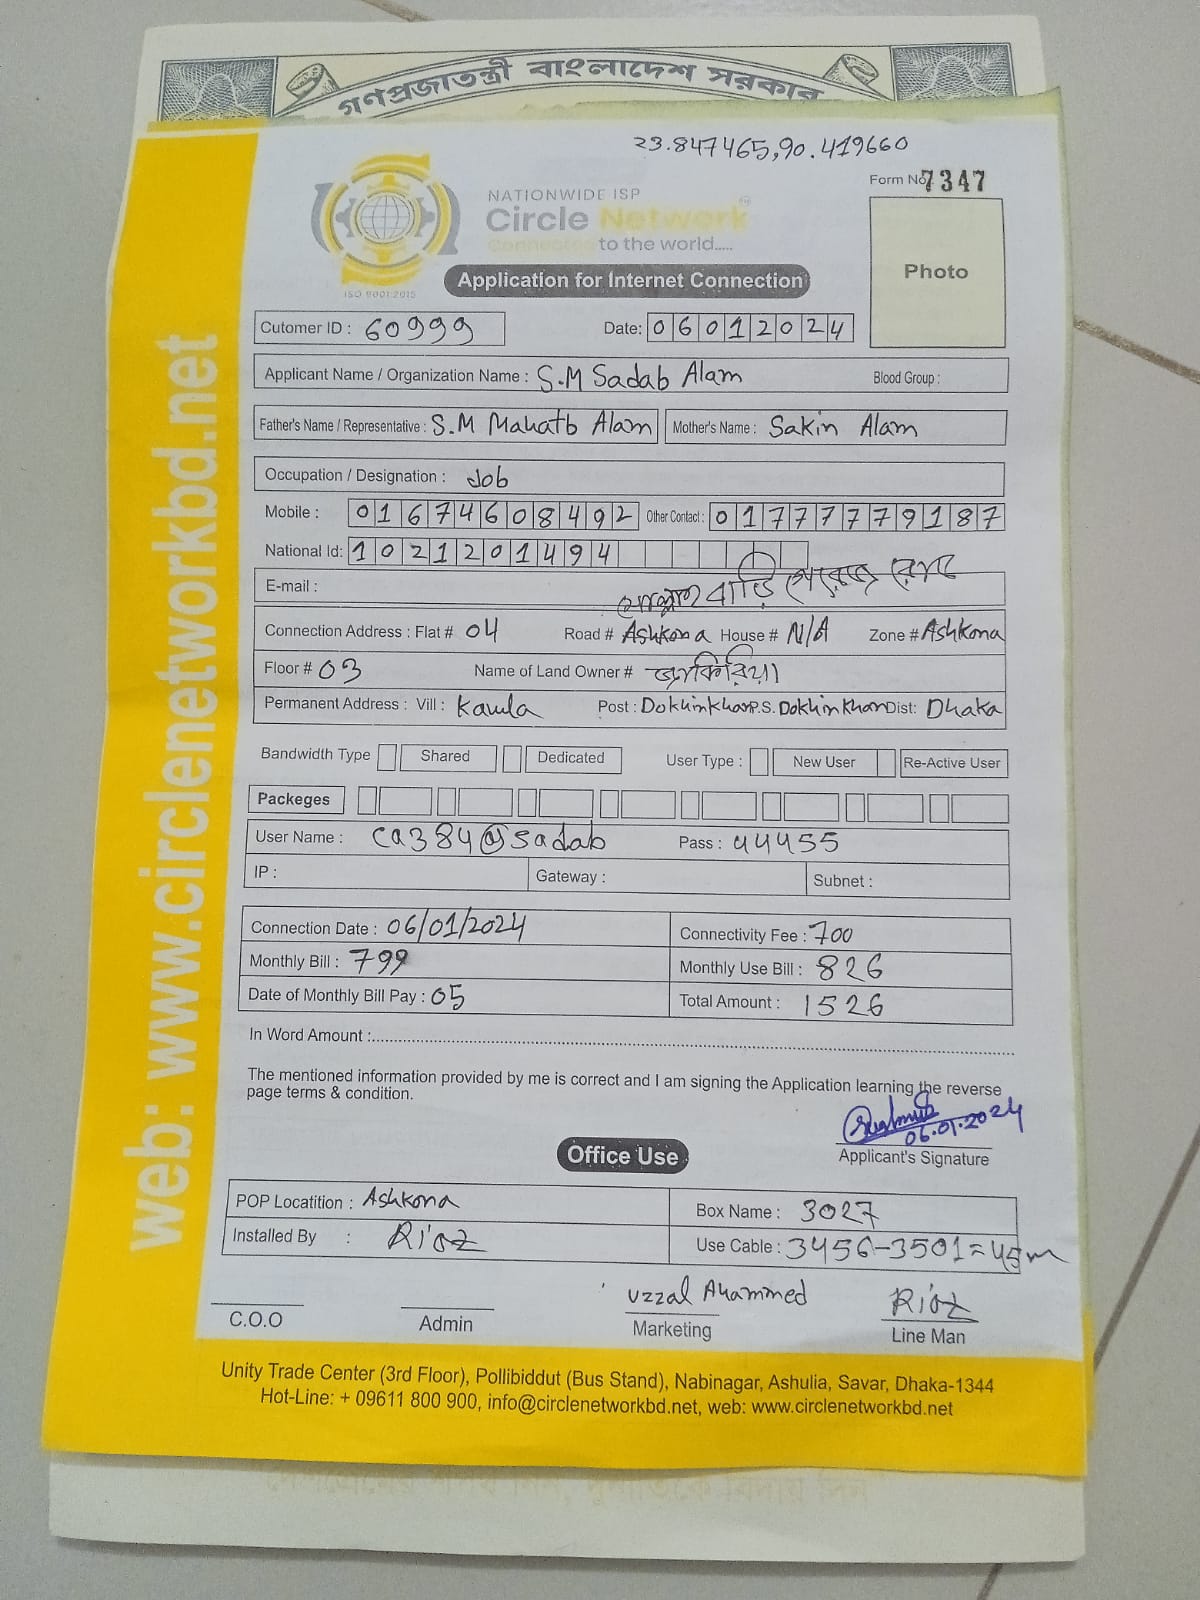 গণপ্রজাতন্ত্রী বাংলাদেশ সরকার
23.847465,90.419660
Form No 7347
NATIONWIDE ISP
Circle Network
Connected to the world.....
ISO 9001:2015
Application for Internet Connection
Photo
Cutomer ID : 60999 Date: 06012024
Applicant Name / Organization Name : S.M Sadab Alam Blood Group :
Father's Name / Representative : S.M Mahatb Alam Mother's Name : Sakin Alam
Occupation / Designation : Job
Mobile : 01674608492 Other Contact : 01777779187
National Id: 1021201494
E-mail :
Connection Address : Flat # 04 Road # Ashkona House # N/A Zone # Ashkona
Floor # 03 Name of Land Owner # জাকিরিয়া
Permanent Address : Vill : Kawla Post : Dokhinkhan P.S. Dokhinkhan Dist: Dhaka
Bandwidth Type Shared Dedicated User Type : New User Re-Active User
Packeges
User Name : ca384@sadab Pass : 44455
IP : Gateway : Subnet :
Connection Date : 06/01/2024 Connectivity Fee : 700
Monthly Bill : 799 Monthly Use Bill : 826
Date of Monthly Bill Pay : 05 Total Amount : 1526
In Word Amount :
The mentioned information provided by me is correct and I am signing the Application learning the reverse
page terms & condition.
06.01.2024
Applicant's Signature
Office Use
POP Locatition : Ashkona Box Name : 3027
Installed By : Riaz Use Cable : 3456-3501=45m
Uzzal Ahammed Riaz
C.O.O Admin Marketing Line Man
Unity Trade Center (3rd Floor), Pollibiddut (Bus Stand), Nabinagar, Ashulia, Savar, Dhaka-1344
Hot-Line: + 09611 800 900, info@circlenetworkbd.net, web: www.circlenetworkbd.net
web: www.circlenetworkbd.net